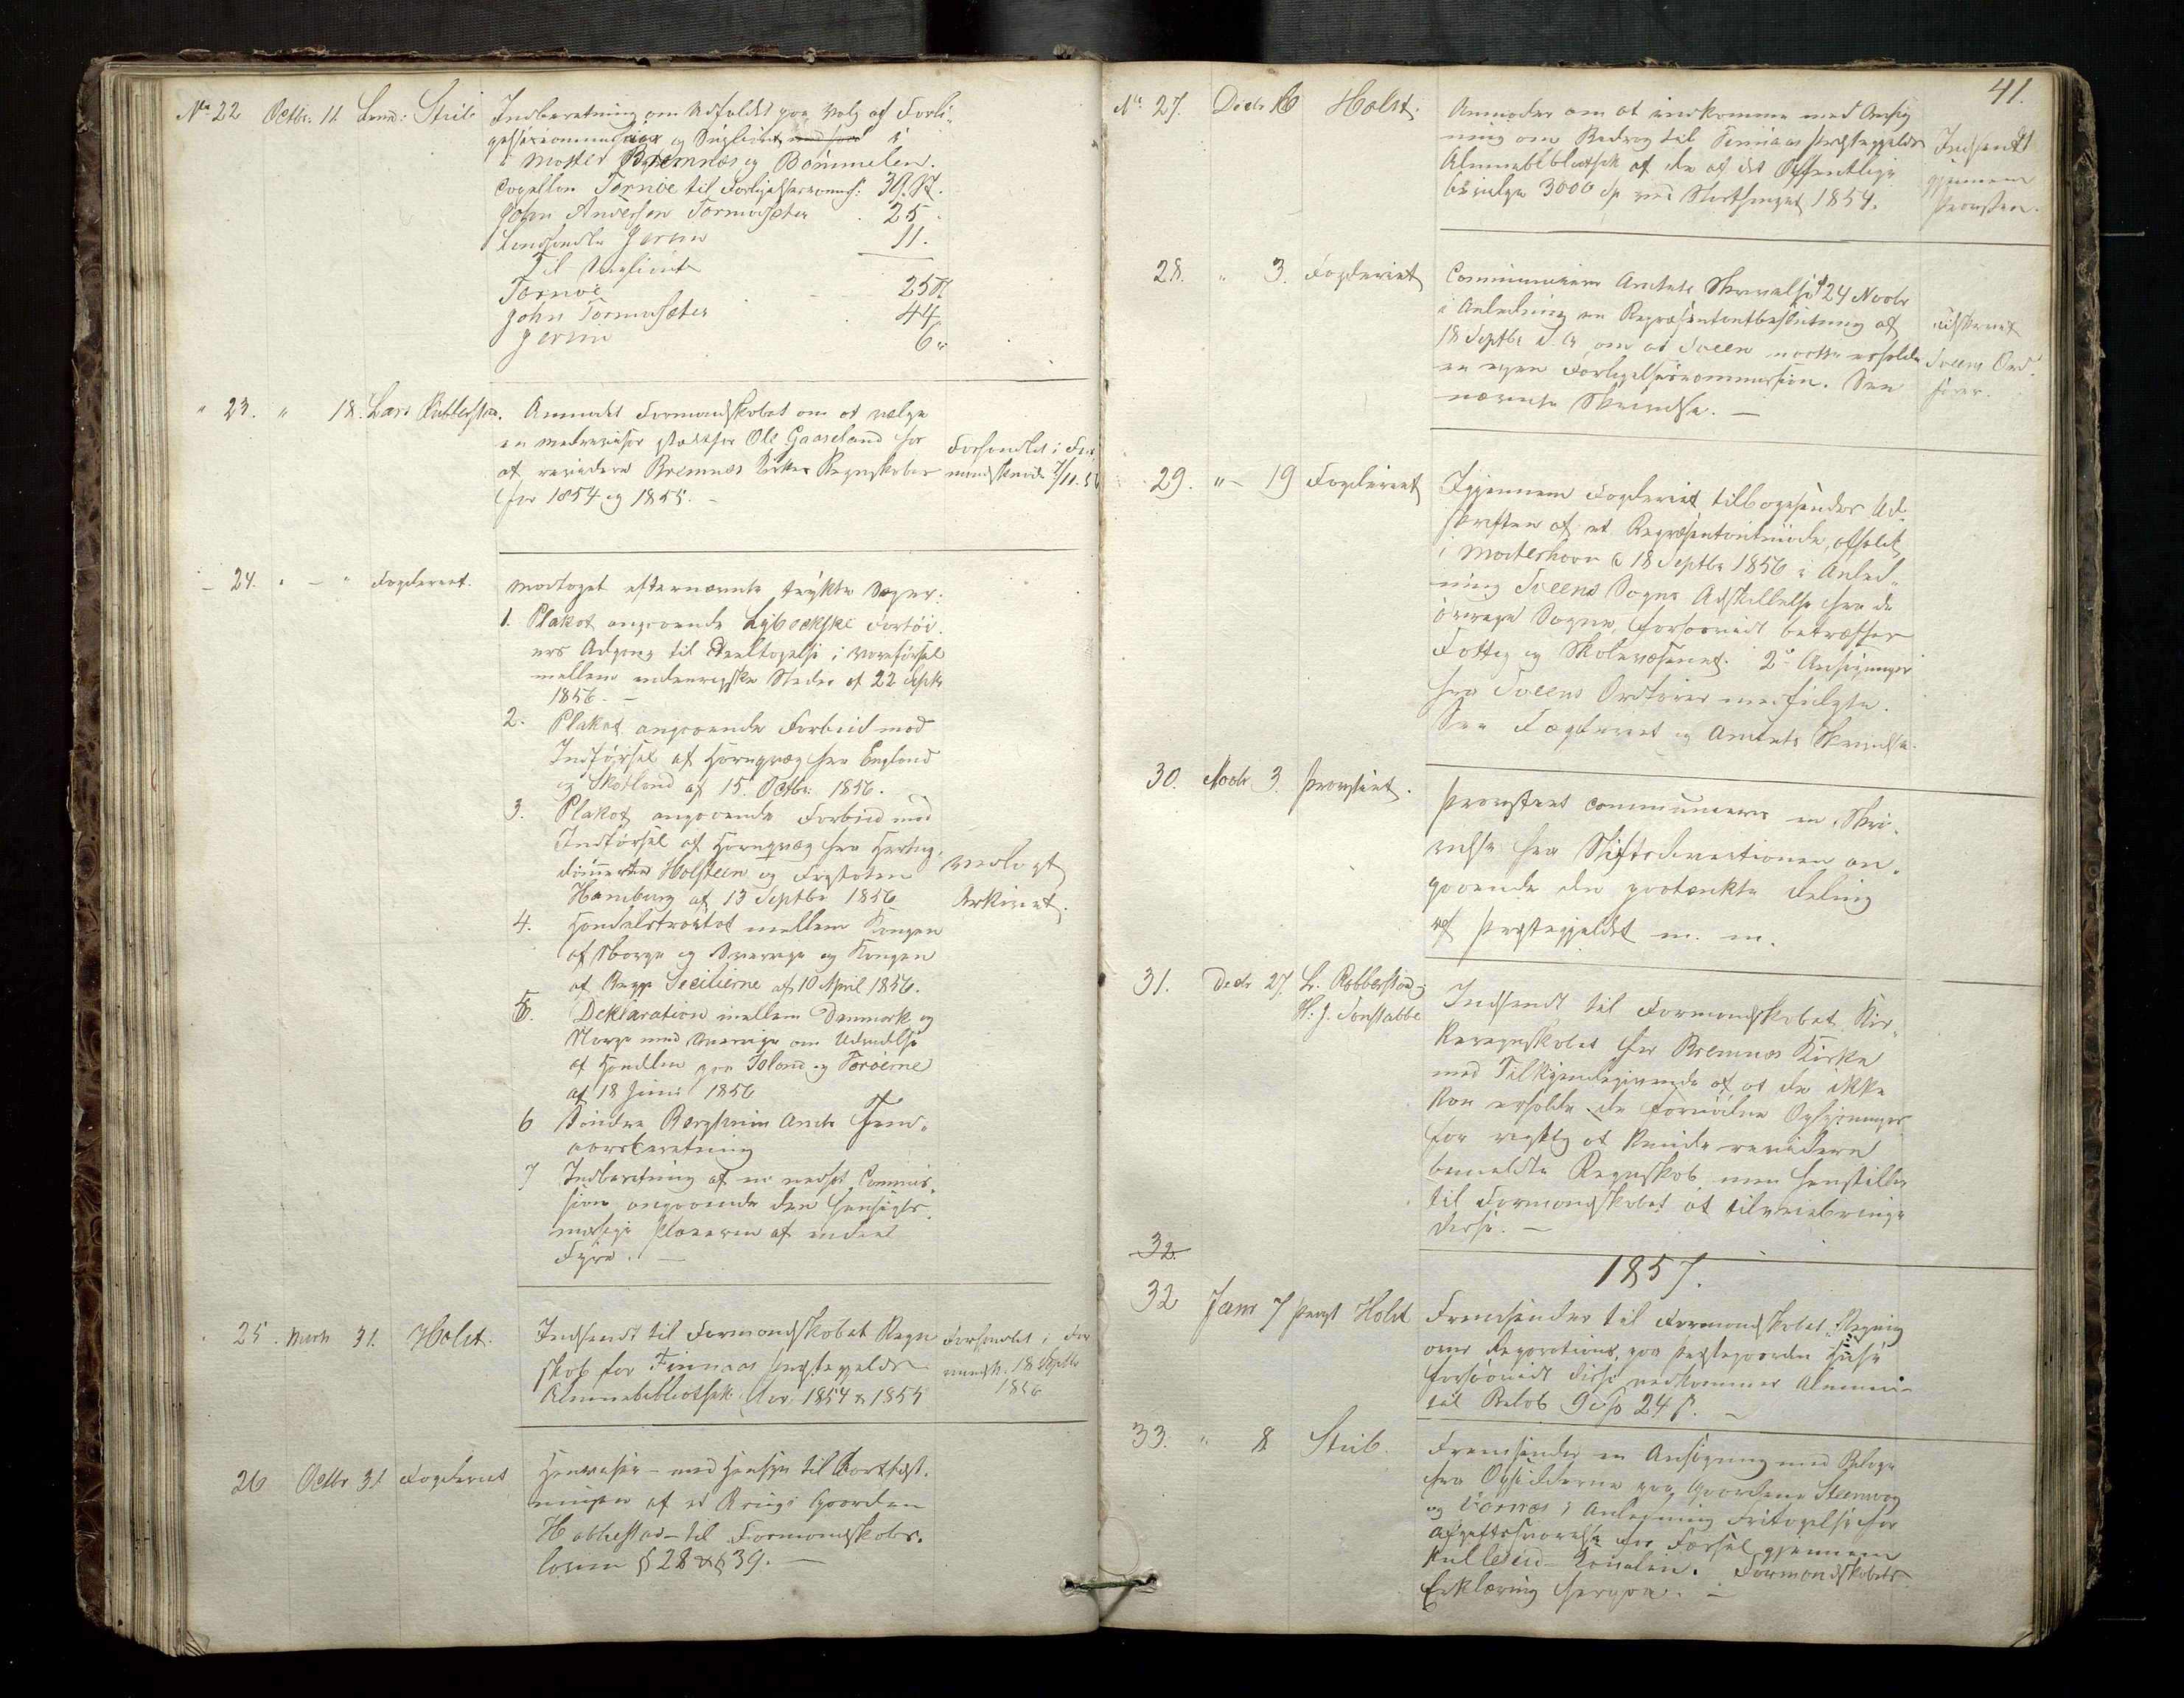 No 22 Octbr. 11. Lensm: Stub Indberetning om Udfaldet paa Valg af Forli-
gelseskommissair og Supleant i
i Moster Bremnæs og Bømmelen.
Capellan Tornöe til Forligelseskomms: 39. St.
John Andersen Tormodsæter 25.
11.
Til Supleant
Tornöe 25 St
John Tormodsæter 44.
6 "
" 23. " 18. Lars Rubbestad. Anmodet Formandskabet om at vælge
en medrevisor istædetfor Ole Gaaseland for
at revidere Bremnæs Kirkes Regnskaber
for 1854 og 1855. -
Forhandlet i For-
mandskabet 7/11. 56
- 24. " - " Fogderiet. Modtaget efternævnte trykte Sager:
1. Plakat angaaende Lybækske Fartöi-
ers Adgang til Deeltagelse i Vareförsel
mellem indenrigske Steder af 22 Septb
1856. -
2. Plakat angaaende Forbud mod
Indförsel af Hornqvæg fra England
og Skotland af 15. Octbr. 1856.
3. Plakat angaaende Forbud mod
Indförsel af Hornqvæg fra Hertug-
dömmerne Holsteen og Fristaten
Hamburg af 13 Septbr 1856
4. Handelstraktat mellem Kongen
af Norge og Sverrige og Kongen
af Begge Secilierne af 10 April 1856.
5. Deklaration mellem Danmark og
Norge med Sverrige om Udvidelse
af Handelen paa Island og Færöerne
af 18 Juni 1856
6 Söndre Bergenhus Amts Fem-
aarsberetning
7 Indberetning af en nedsat Commis-
sion angaaende den hensigts-
mæssige Placeren af endeel
Fyre. -
Vedlagt
Arkivet.
25. 31. Holst. Indsendt til Formandskabet Regn-
skab for Finnaas Præstegjelds
Almuebibliothek for 1854 & 1855
Forhandlet i For
mandsk. 18 Septbr
1856
26 Octbr 31 Fogderiet Henviser - med Hensyn til Fortsæt-
af et Gaarden
til Formandskabs-
loven § 28 & § 39. -
41.
No 27. Decbr 16 Holst. Anmoder om at indkomme med Ansög-
ning om Bidrag til Finnaas Præstegjelds
Almuebibliothek af de af det Offentlige
bevilgede 3000 Sp ved Storthinget 1854.
Indsendt
gjennem
Provsten.
28. " 3. Fogderiet Communicerer Amtets Skrivelse af 24 Novbr
i Anledning en Repræsentantbeslutning af
18 Septbr d. A. om at Sveen maatte erholde
en egen Forligelseskommission. See
nævnte Skrivelse. -
Udskrevet
Sveens Ord-
förer.
29. "- 19 Fogderiet Igjennem Fogderiet tilbagesendes Ud-
skriften af et Repræsentantmöde, afholdt
i Mosterhavn d 18 Septbr 1856 i Anled-
ning Sveens Sogns Adskillelse fra de
övrige Sogne, forsaavidt betræffer
Fattig og Skolevæsenet. 2de Ansögninger
fra Sveens Ordförer medfulgte.
See Fogderiet og Amtets Skrivelse.
30. Novbr 3. Provstiet. Provstiet communicerer en Skri-
velse fra Stiftsdirectionen an-
gaaende den paatænkte Deling
af Præstegjeldet m. m.
31. Decbr 27. L. Robberstad og
H. J. Tonstabbe Indsendt til Formandskabet Kir-
keregnskabet for Bremnæs Kirke
med Tilkjendegivende af at de ikke
kan erholde de fornödne Oplysninger
for rigtig at kunde revidere
bemeldte Regnskab men henstiller
til Formandskabet at tilveiebringe
disse. -
32.
1857.
32 Janr 7 Provst Holst Fremsender til Formandskabet Regning
over Reparation paa Præstegaardens Huse
forsaavidt disse vedkommer Almuen
til Belöb 9 Sp 24 s. -
33. " 8 Stub. Fremsender en Ansögning med Bilage
fra Opsidderne paa Gaardene Steensvog
og Vornæs i Anledning Fritagelse for
Afgiftssvarelse for Færsel gjennem
Kulleseid-Kanalen. Formandskabets
Erklæring herpaa. -